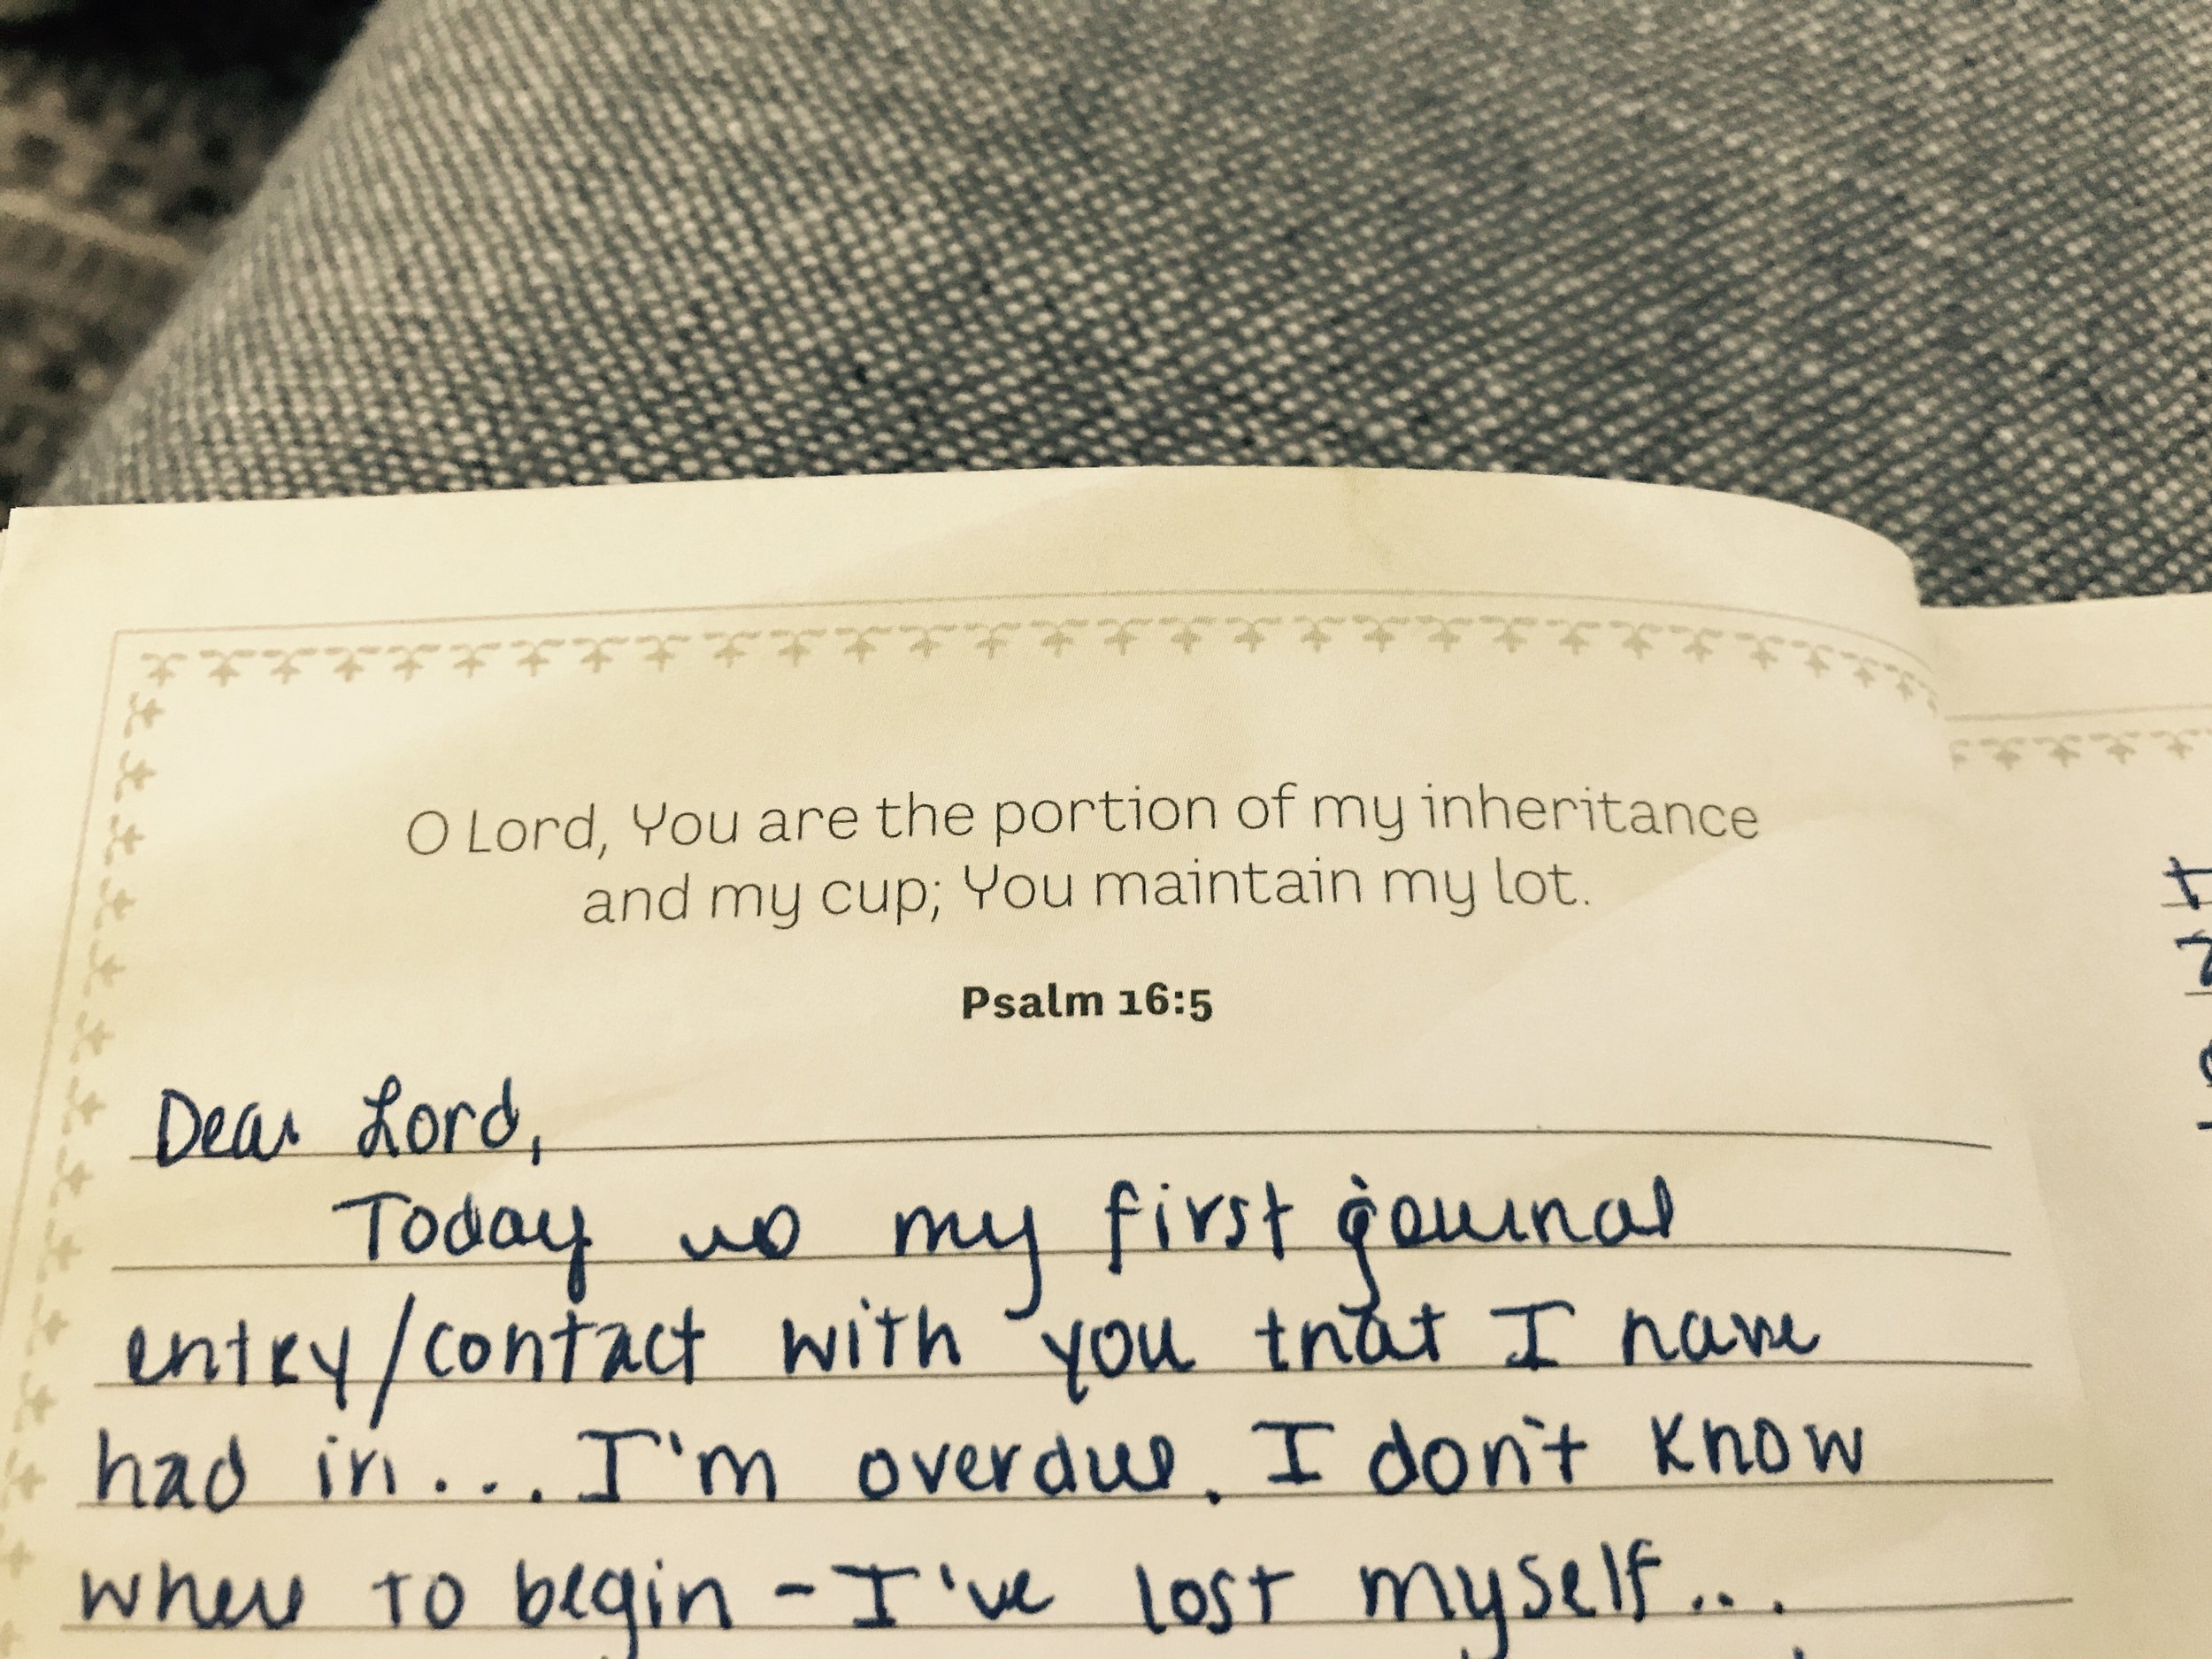 O Lord, You are the portion of my inheritance
and my cup; You maintain my lot.
Psalm 16:5
Dear Lord,
Today is my first journal
entry/contact with you that I have
had in... I'm overdue. I don't know
where to begin - I've lost myself...